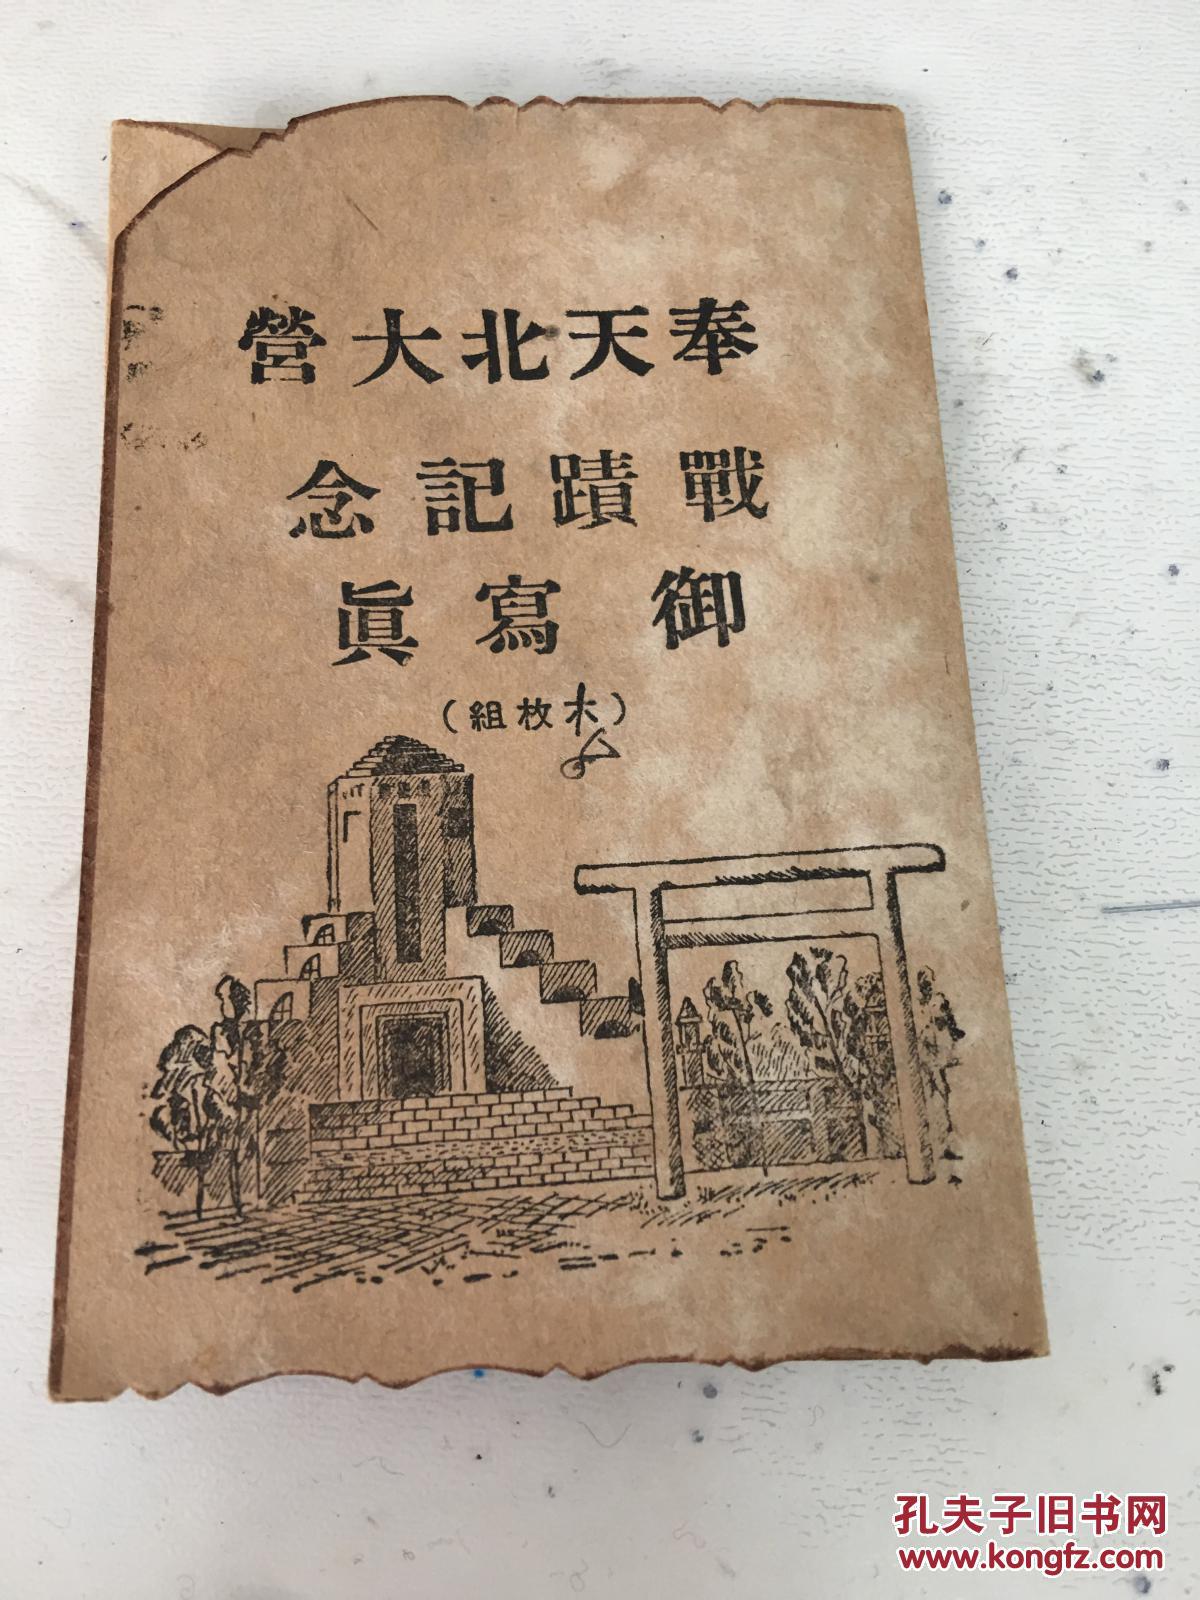 奉天北大營
戰蹟記念
御寫眞
(木枚組)
孔夫子旧书网
www.kongfz.com